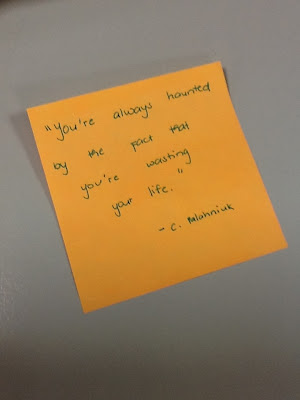 "You're always haunted
by the fact that
you're wasting
your life."
- C. Palahniuk